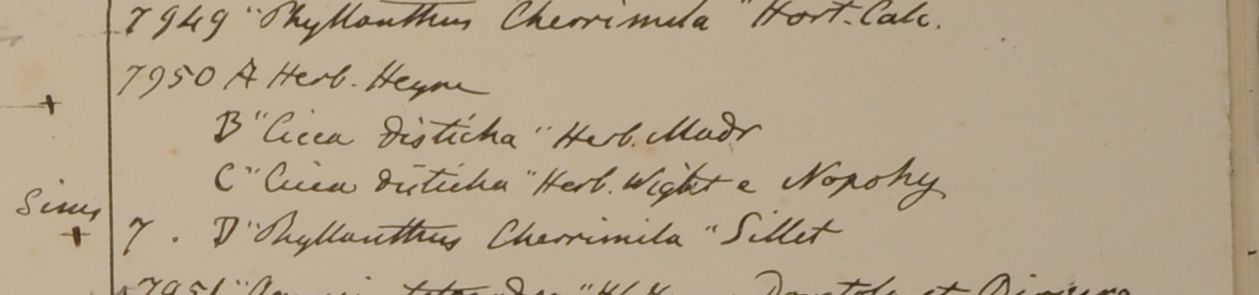 7949 "Phyllanthus Cherrimela" Hort. Calc.
7950 A Herb. Heyne
B "Cicca disticha" Herb. Madr
C "Cicca disticha" Herb. Wight e Nopohy
7. D "Phyllanthus Cherrimila" Sillet
7951 et